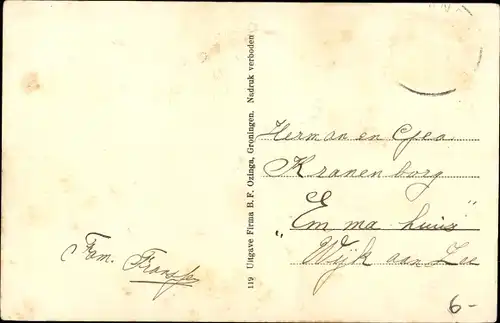 Fam. Franssen
119 Uitgave Firma B. F. Ozinga, Groningen. Nadruk verboden
Herman en Gea
Kranenborg
„Emma huis"
Wijk aan Zee
6-